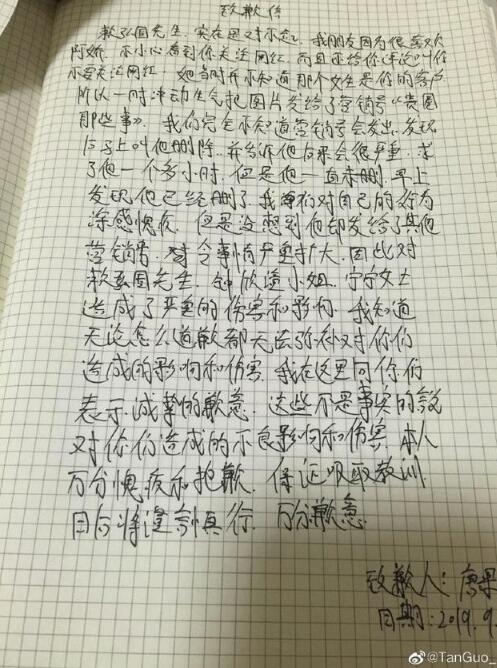 致歉信
赖弘国先生, 实在是对不起, 我朋友因为很喜欢
阿娇, 不小心看到你关注网红, 而且还给你评论叫你
不要关注网红, 她当时并不知道那个女生是你的客户
所以一时冲动生气把图片发给了营销号《贵圈
那些事》. 我们完全不知道营销号会发出. 发现
后马上叫他删除. 并告诉他后果会很严重. 求
了他一个多小时. 但是他一直未删. 早上
发现他已经删了. 我们对自己的行为
深感愧疚. 但是没想到他却发给了其他
营销号. 令事情严重扩大. 因此对
赖弘国先生. 钟欣潼小姐. 宁宁女士
造成了严重的伤害和影响. 我知道
无论怎么道歉都无法弥补对你们
造成的影响和伤害. 我在这里向你们
表示诚挚的歉意. 这些不是事实的
对你们造成的不良影响和伤害 本人
万分愧疚和抱歉. 保证吸取教训.
日后将谨言慎行. 万分歉意.
致歉人: 唐果
日期: 2019.9.
@TanGuo_